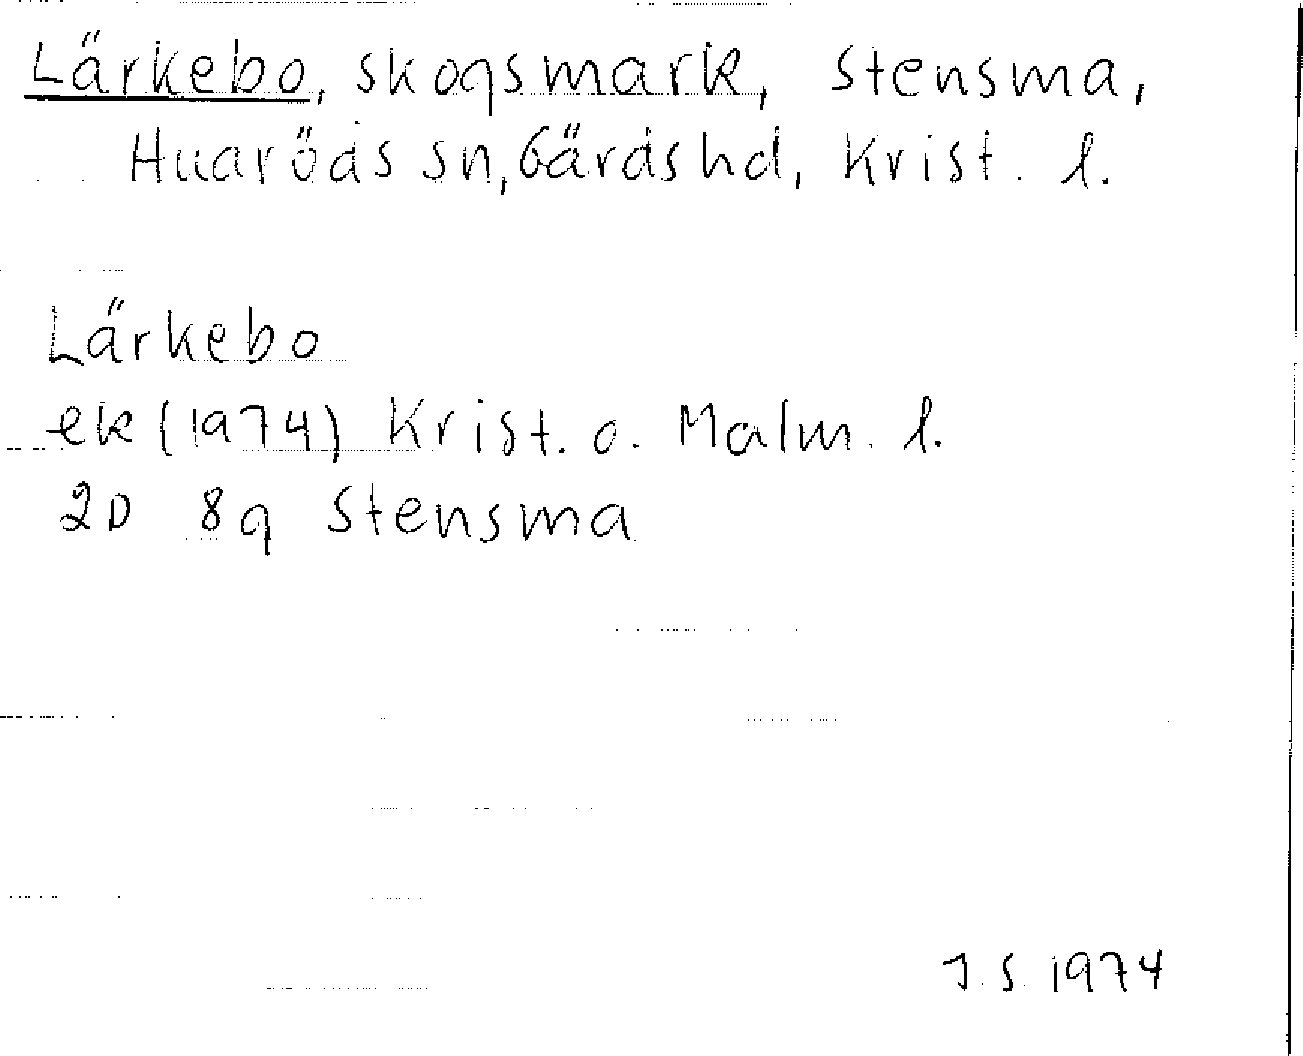 Lärkebo, skogsmark, Stensma,
Huaröds sn, Gärds hd, Krist. l.
Lärkebo
ek (1974) Krist. o. Malm. l.
2D 8g Stensma
J.S. 1974